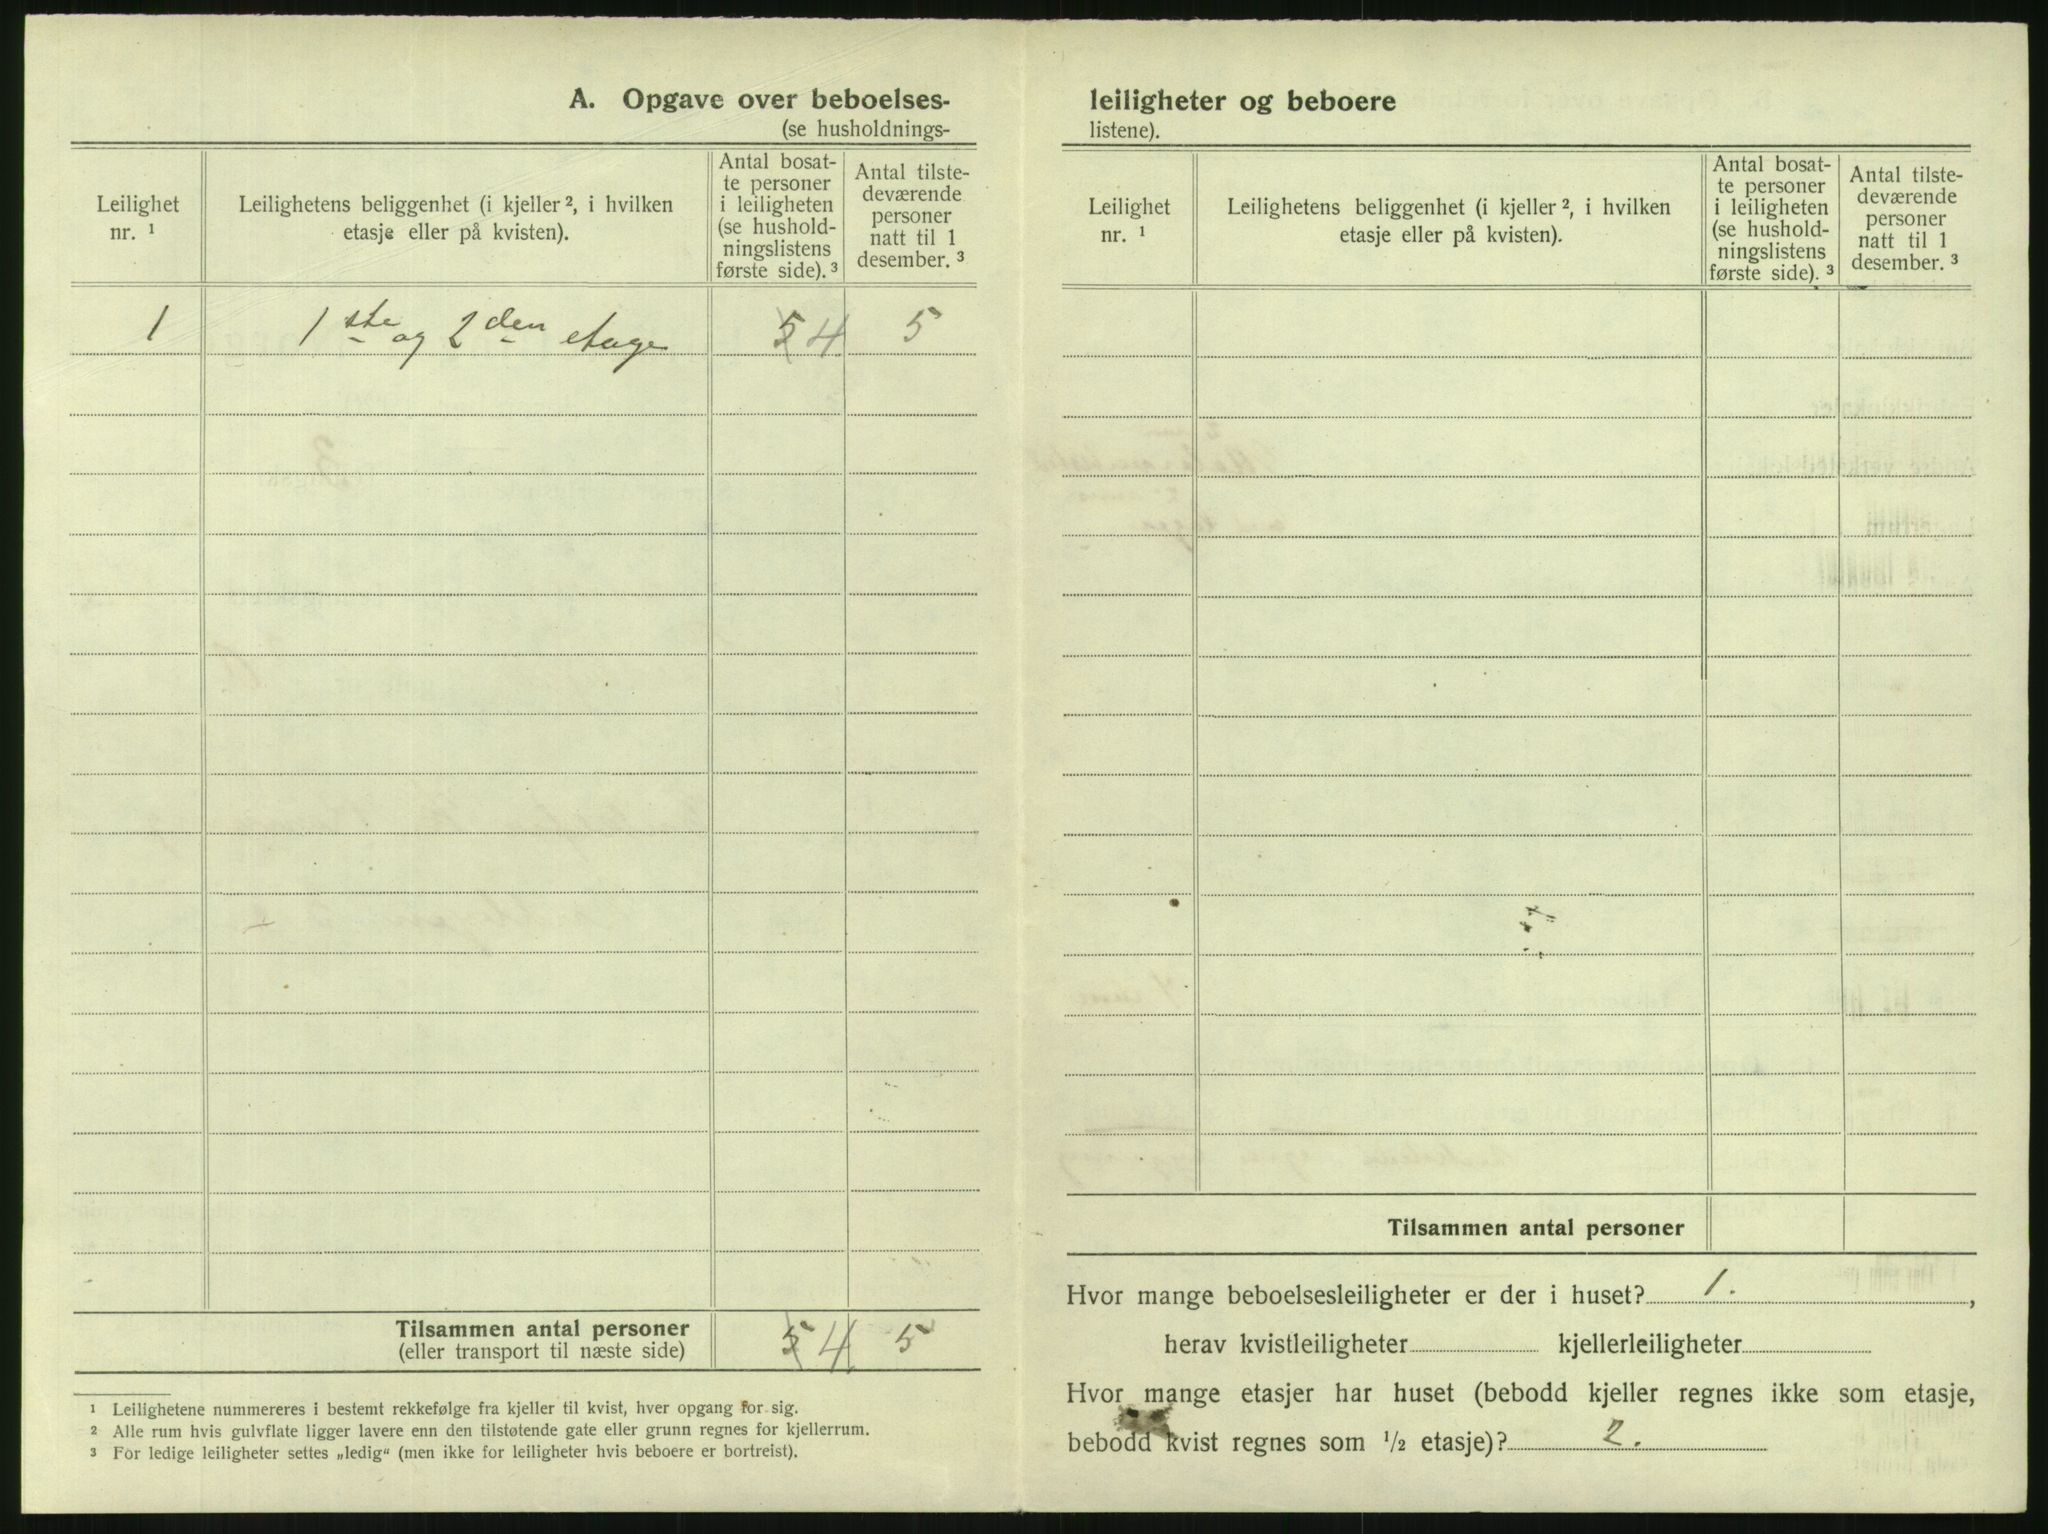 A. Opgave over beboelses-
(se husholdnings-
Leilighet
nr. ¹
Leilighetens beliggenhet (i kjeller ², i hvilken
etasje eller på kvisten).
Antal bosat-
te personer
i leiligheten
(se hushold-
ningslistens
første side). ³
Antal tilste-
deværende
personer
natt til 1
desember. ³
1 1ste og 2den etage 5 4 5
Tilsammen antal personer 5 4 5
(eller transport til næste side)
¹ Leilighetene nummereres i bestemt rekkefølge fra kjeller til kvist, hver opgang for sig.
² Alle rum hvis gulvflate ligger lavere enn den tilstøtende gate eller grunn regnes for kjellerrum.
³ For ledige leiligheter settes „ledig“ (men ikke for leiligheter hvis beboere er bortreist).
leiligheter og beboere
listene).
Leilighet
nr. ¹
Leilighetens beliggenhet (i kjeller ², i hvilken
etasje eller på kvisten).
Antal bosat-
te personer
i leiligheten
(se hushold-
ningslistens
første side). ³
Antal tilste-
deværende
personer
natt til 1
desember. ³
Tilsammen antal personer
Hvor mange beboelsesleiligheter er der i huset? 1. ,
herav kvistleiligheter kjellerleiligheter
Hvor mange etasjer har huset (bebodd kjeller regnes ikke som etasje,
bebodd kvist regnes som ½ etasje)? 2.